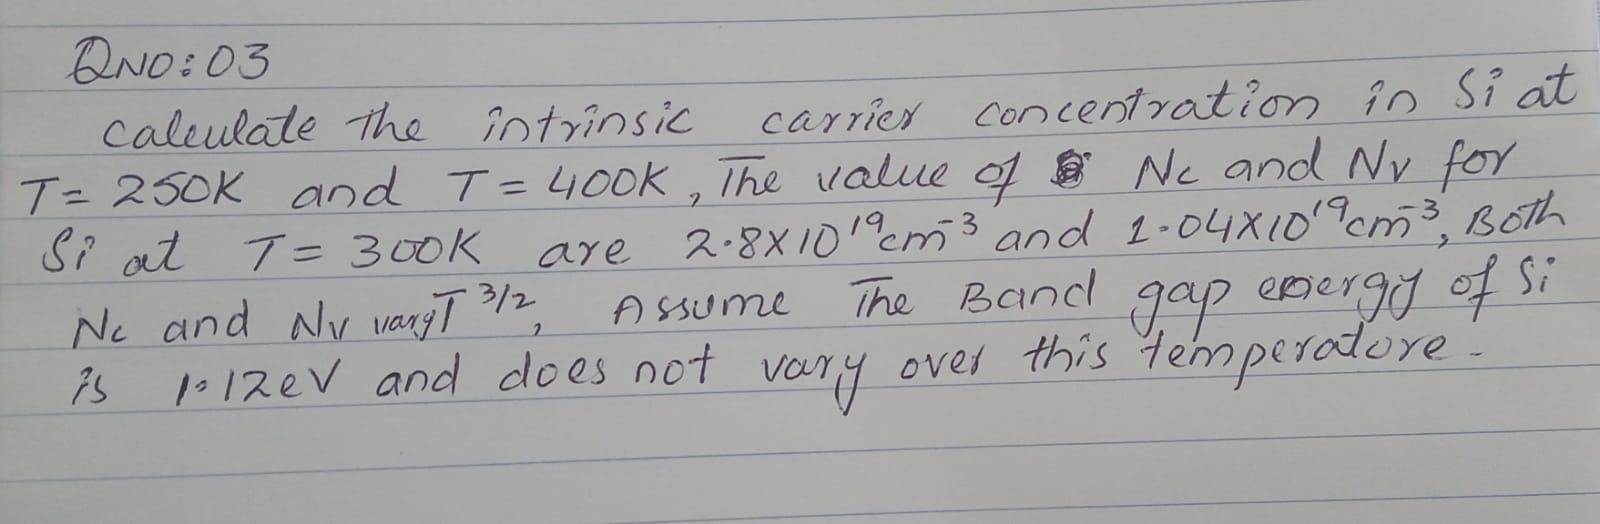 QNO: 03
calculate the intrinsic carrier concentration in Si at
T = 250K and T = 400K, The value of Nc and Nv for
Si at T = 300K are 2.8X10¹⁹cm⁻³ and 1.04X10¹⁹cm⁻³, Both
Nc and Nv vary T³/², Assume The Band gap energy of Si
is 1.12eV and does not vary over this temperatore.